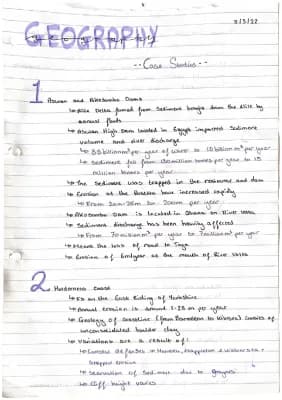 2/3/22
GEOGRAPHY
--Case Studies--
1 Aswan and Akosombo Dams
↳ Nile Delta formed from Sediment brought down the Nile by
annual floods
↳ Aswan High Dam located in Egypt impacted Sediment
volume and river discharge
per year of water to
per year
↳ Sediment fell from 130 million tonnes per year to 15
million tonnes per year
↳ The Sediment was trapped in the reservoir and dam
↳ Erosion at the Rosetta have increased rapidly
↳ From per year
↳ Akosombo Dam is located in Ghana on River Volta
↳ Sediment discharge has been heavily affected
↳ From per year to per year
↳ Means the loss of road to Togo
↳ Erosion of 6m/year at the mouth of River Volta
2 Holderness Coast
↳ Is on the East Riding of Yorkshire
↳ Annual erosion is around per year
↳ Geology of coastline (from to ) consists of
unconsolidated boulder clay
↳ Variations are a result of:
↳ Coastal defenses in Hornsea, Mappleton &
stopped erosion
↳ Starvation of Sediment due to groynes
↳ Cliff height varies